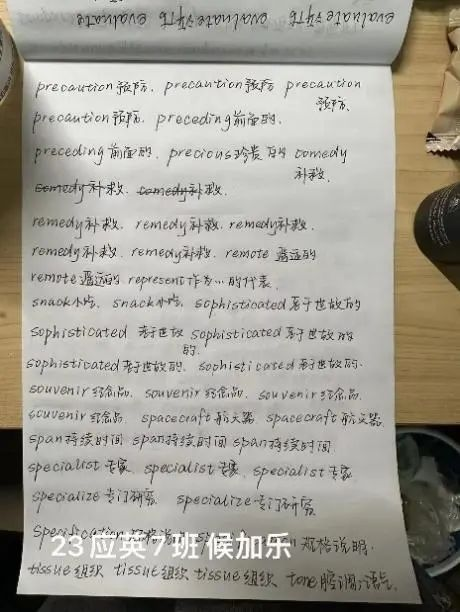 evaluate 评价 evaluate 评价 evaluate
precaution 预防. precaution 预防 precaution
预防.
precaution 预防. preceding 前面的.
preceding 前面的, precious 珍贵的 comedy
补救.
comedy 补救. comedy 补救.
remedy 补救. remedy 补救. remedy 补救.
remedy 补救. remedy 补救. remote 遥远的
remote 遥远的 represent 作为…的代表.
snack 小吃. snack 小吃. sophisticated 老于世故的
sophisticated 老于世故 sophisticated 老于世故的
的.
sophisticated 老于世故的. sophisticated 老于世故的.
souvenir 纪念品. souvenir 纪念品. souvenir 纪念品.
souvenir 纪念品. spacecraft 航天器. spacecraft 航天器
span 持续时间 span 持续时间 span 持续时间
specialist 专家. specialist 专家. specialist 专家
specialize 专门研究 specialize 专门研究
specification 规格说明.
23应英7班 候加乐
tissue 组织 tissue 组织 tissue 组织 tone 腔调;语气.